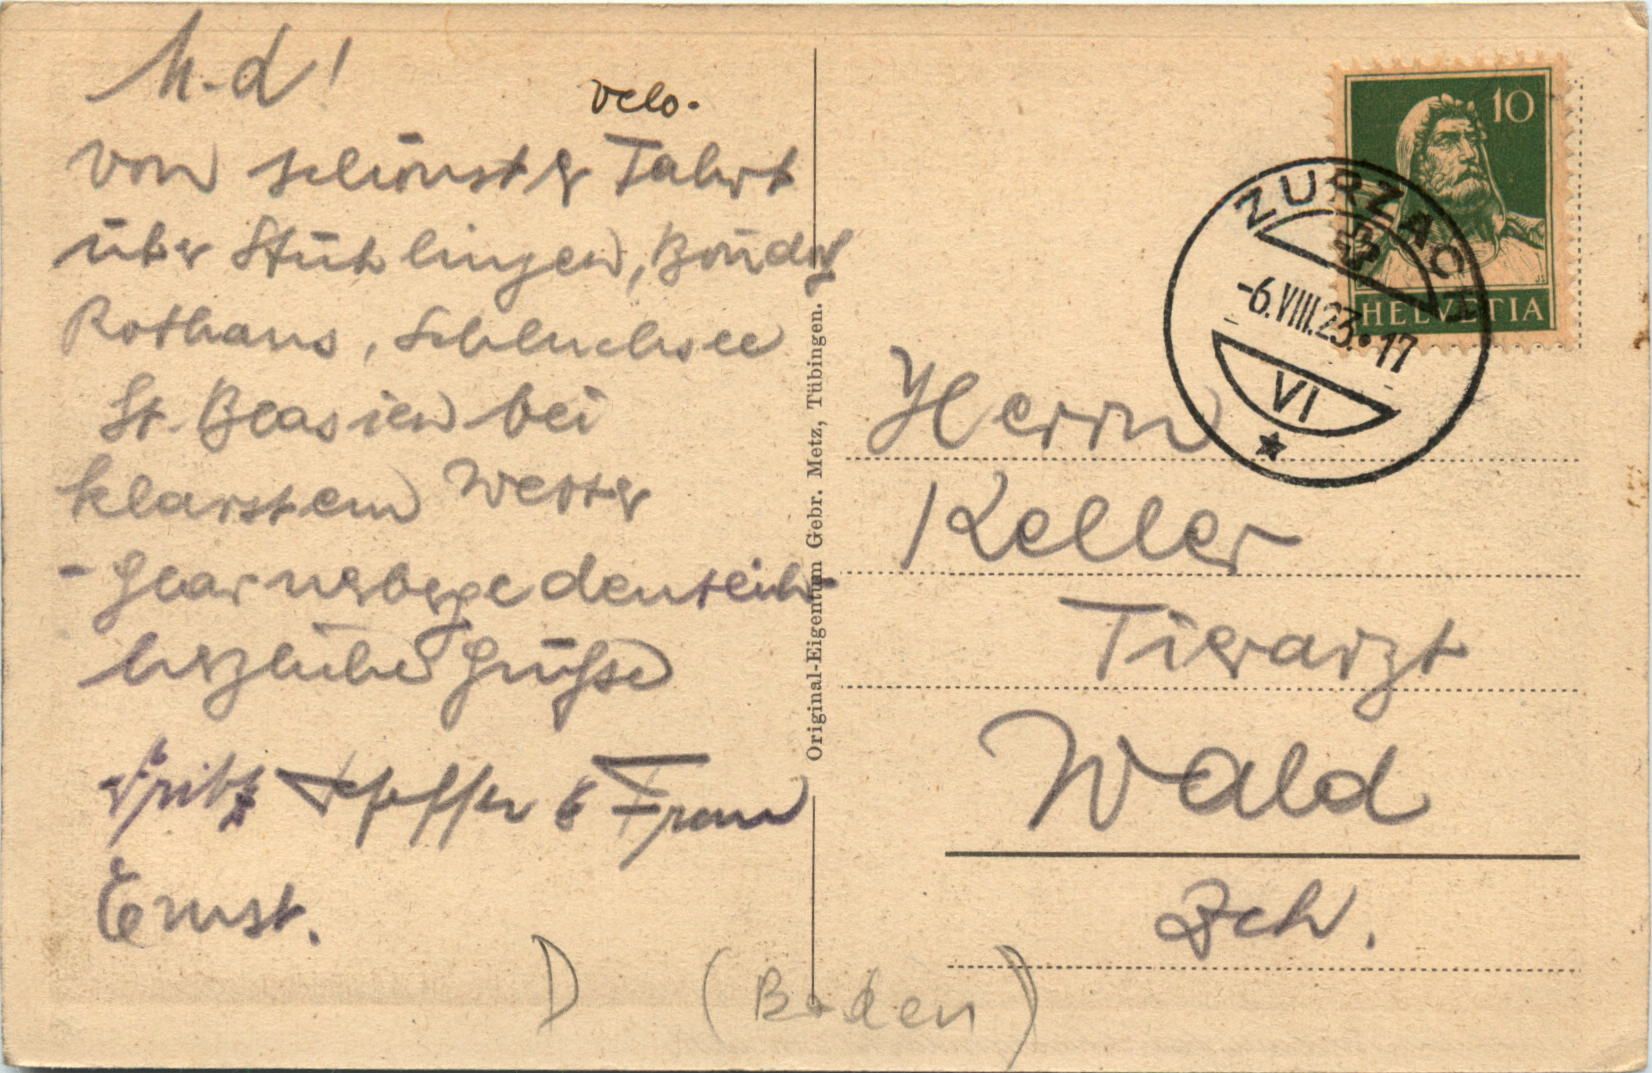 M.d!
Velo-
von schönster Fahrt
über Stühlingen, Bonndorf
Rothaus, Schluchsee
St. Blasien bei
klarstem Wetter
herzliche Grüsse
Fritz
Frau
Ernst.
Original-Eigentum Gebr. Metz, Tübingen.
10
HELVETIA
ZURZACH
-6.VIII.23.•17
VI
Herrn
Keller
Tierarzt
Wald
Zch.
D (Baden)